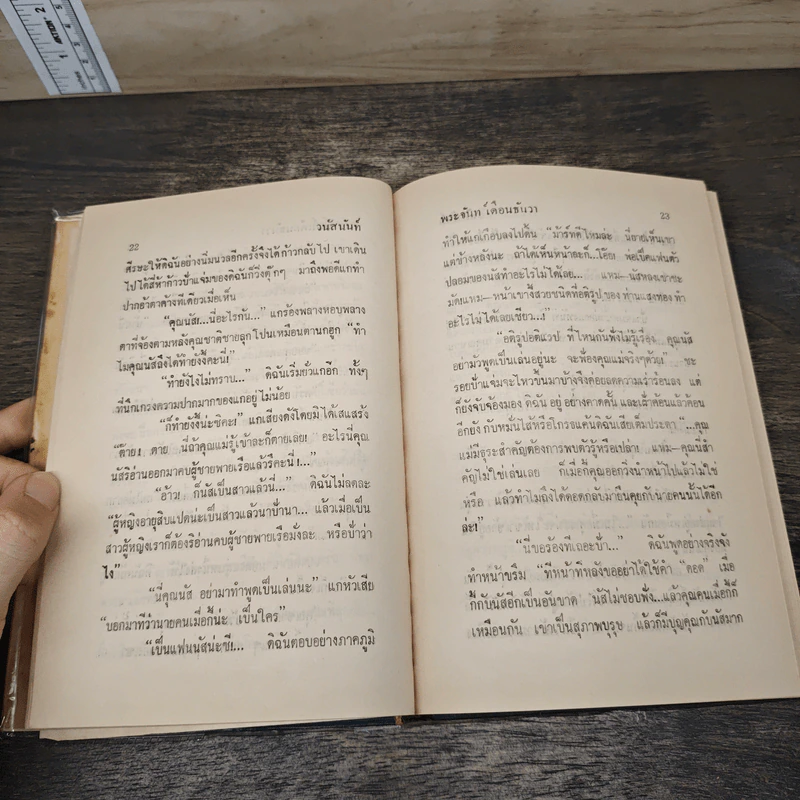 22
วนัสนันท์
ศีรษะให้ดิฉันอย่างนิ่มนวลอีกครั้งจึงได้ก้าวกลับไป เขาเดิน
ไปได้สี่ห้าก้าวป้าแจ่มของดิฉันก็วิ่งตุ๊กๆ มาถึงพอดีแกทำ
ปากอ้าตาค้างทีเดียวเมื่อเห็น
"คุณนัส!...นี่อะไรกัน..." แกร้องพลางหอบพลาง
ตาที่จ้องตามหลังคุณชาติชายลุกโปนเหมือนตานกฮูก "ทำ
ไมคุณนัสถึงได้ทำยังงี้คะนี่!"
"ทำยังไงไม่ทราบ..." ดิฉันเริ่มยั่วแกอีก ทั้งๆ
ที่นึกเกรงความปากมากของแกอยู่ไม่น้อย
"ก็ทำยังงี้น่ะซิคะ!" แกเสียงดังโดยมิได้เสแสร้ง
"ต๊าย! ตาย นี่ถ้าคุณแม่รู้เข้าละก็ตายเลย! อะไรนี่คุณ
นัสริอ่านออกมาคบผู้ชายพายเรือแล้วรึคะนี่!..."
"อ้าว! ก็นัสเป็นสาวแล้วนี่..." ดิฉันไม่ลดละ
"ผู้หญิงอายุสิบแปดน่ะเป็นสาวแล้วนาป้านา... แล้วเมื่อเป็น
สาวผู้หญิงเราก็ต้องริอ่านคบผู้ชายพายเรือมั่งละ หรือป้าว่า
ไง"
"นี่คุณนัส อย่ามาทำพูดเป็นเล่นนะ" แกหัวเสีย
"บอกมาทีว่านายคนเมื่อกี้น่ะ เป็นใคร"
"เป็นแฟนนัสน่ะซี!..." ดิฉันตอบอย่างภาคภูมิ
พระจันทร์เดือนธันวา
23
ทำให้แกเกือบลงไปดิ้น "ม้าร์ทดีไหมล่ะ นี่ยายเห็นเขา
แต่ข้างหลังนะ ถ้าได้เห็นหน้าละก็...โอ๊ย! พ่อเบิ๊คแฟนตัว
ปลอมของนัสทำอะไรไม่ได้เลย... แหม—นัสหลงเข้าซะ
มัดแหม—หน้าเขาจั๊งสวยชนิดที่อติรูปของท่านแสงทอง ทำ
อะไรไม่ได้เลยเชียว...!"
"อติรูปอติแวป ที่ไหนกันพึ่งไม่รู้เรื่อง คุณนัส
อย่ามัวพูดเป็นเล่นอยู่นะ จะฟ้องคุณแม่จริงๆด้วย!" ชะ
รอยป้าแจ่มจะไหวขึ้นมาบ้างจึงค่อยลดความเร่าร้อนลง แต่
ก็ยังจับจ้องมอง ดิฉัน อยู่ อย่างคาดคั้น และเร่าค้อนแล้วค้อน
อีกยัง กับหมั่นไส้หรือโกรธแค้นดิฉันเสียเต็มประดา "...คุณ
แม่มีธุระสำคัญต้องการพบตัวรู้หรือเปล่า! แหม—คุณนี่สำ
คัญไม่ใช่เล่นเลย ก็เมื่อกี้คุณออกวิ่งนำหน้าไปแล้วไม่ใช่
หรือ แล้วทำไมถึงได้ดอดกลับมายืนคุยกับนายคนนั้นได้อีก
ล่ะ!"
"นี่ขอร้องทีเถอะป้า..." ดิฉันพูดอย่างจริงจัง
ทำหน้าขรึม "ทีหน้าทีหลังขออย่าได้ใช้คำ "ดอด" เมื่อ
กี้กับนัสอีกเป็นอันขาด นัสไม่ชอบฟัง...แล้วคุณคนเมื่อกี้ก็
เหมือนกัน เขาเป็นสุภาพบุรุษ แล้วก็มีบุญคุณกับนัสมาก